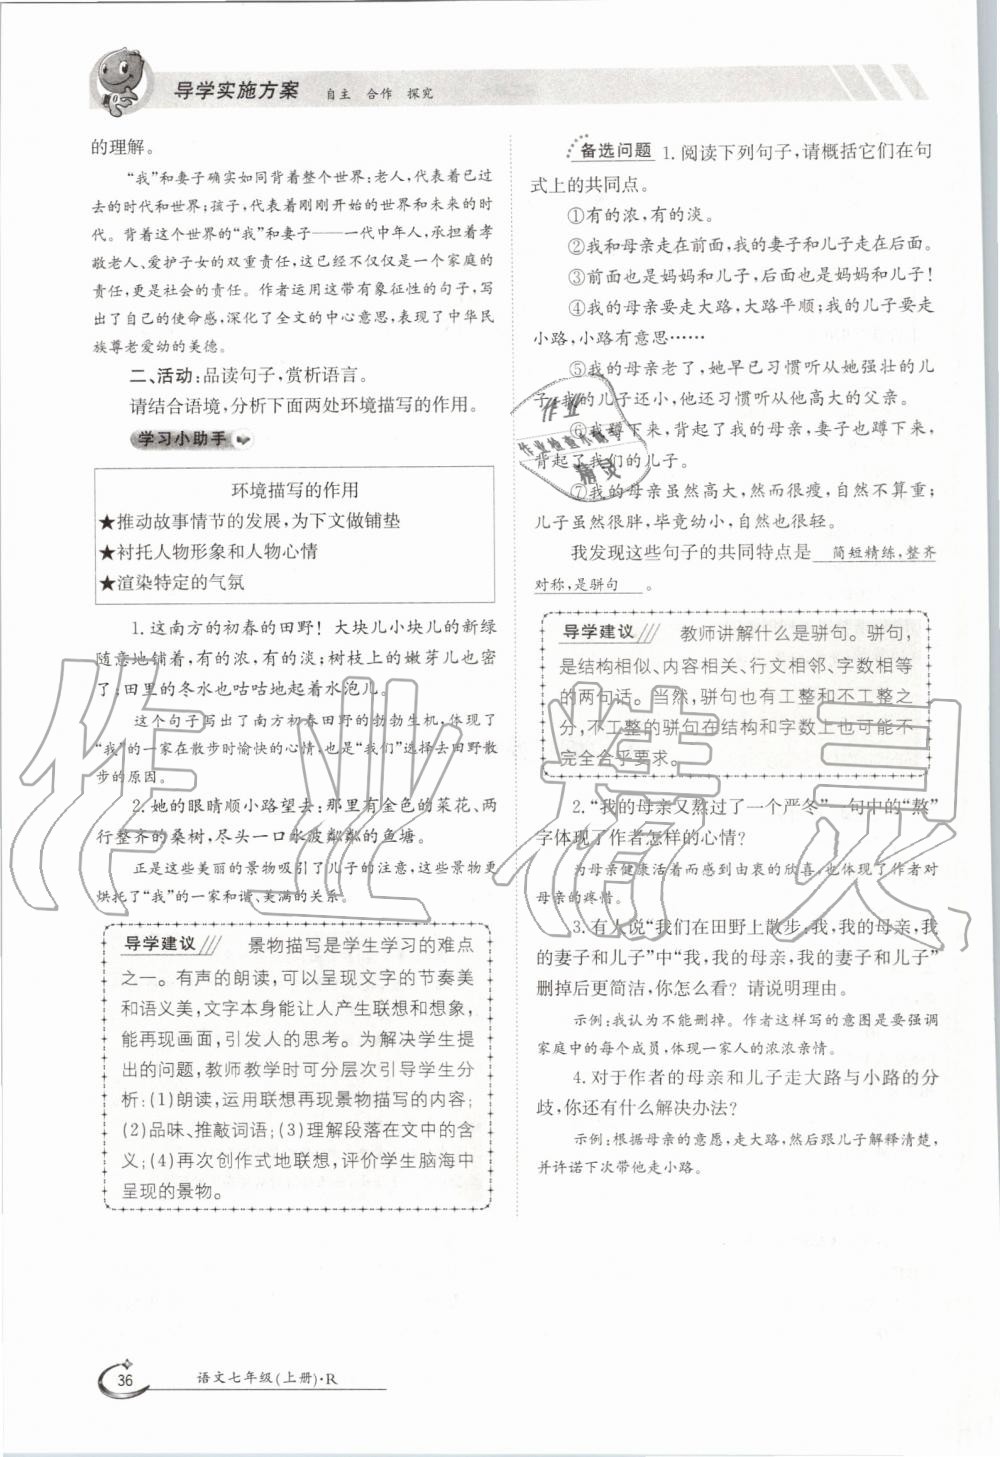 导学实施方案 自主 合作 探究
的理解。
“我”和妻子确实如同背着整个世界:老人,代表着已过
去的时代和世界;孩子,代表着刚刚开始的世界和未来的时
代。背着这个世界的“我”和妻子——一代中年人,承担着孝
敬老人、爱护子女的双重责任,这已经不仅仅是一个家庭的
责任,更是社会的责任。作者运用这带有象征性的句子,写
出了自己的使命感,深化了全文的中心意思,表现了中华民
族尊老爱幼的美德。
二、活动:品读句子,赏析语言。
请结合语境,分析下面两处环境描写的作用。
学习小助手
环境描写的作用
★推动故事情节的发展,为下文做铺垫
★衬托人物形象和人物心情
★渲染特定的气氛
1.这南方的初春的田野！大块儿小块儿的新绿
随意地铺着,有的浓,有的淡;树枝上的嫩芽儿也密
了;田里的冬水也咕咕地起着水泡儿。
这个句子写出了南方初春田野的勃勃生机,体现了
“我”的一家在散步时愉快的心情,也是“我们”选择去田野散
步的原因。
2.她的眼睛顺小路望去:那里有金色的菜花、两
行整齐的桑树,尽头一口水波粼粼的鱼塘。
正是这些美丽的景物吸引了儿子的注意,这些景物更
烘托了“我”的一家和谐、美满的关系。
导学建议 景物描写是学生学习的难点
之一。有声的朗读,可以呈现文字的节奏美
和语义美,文字本身能让人产生联想和想象,
能再现画面,引发人的思考。为解决学生提
出的问题,教师教学时可分层次引导学生分
析:(1)朗读,运用联想再现景物描写的内容;
(2)品味、推敲词语;(3)理解段落在文中的含
义;(4)再次创作式地联想,评价学生脑海中
呈现的景物。
备选问题 1.阅读下列句子,请概括它们在句
式上的共同点。
①有的浓,有的淡。
②我和母亲走在前面,我的妻子和儿子走在后面。
③前面也是妈妈和儿子,后面也是妈妈和儿子！
④我的母亲要走大路,大路平顺;我的儿子要走
小路,小路有意思……
⑤我的母亲老了,她早已习惯听从她强壮的儿
子;我的儿子还小,他还习惯听从他高大的父亲。
⑥我蹲下来,背起了我的母亲,妻子也蹲下来,
背起了我们的儿子。
⑦我的母亲虽然高大,然而很瘦,自然不算重;
儿子虽然很胖,毕竟幼小,自然也很轻。
我发现这些句子的共同特点是 简短精练,整齐
对称,是骈句 。
导学建议 教师讲解什么是骈句。骈句,
是结构相似、内容相关、行文相邻、字数相等
的两句话。当然,骈句也有工整和不工整之
分,不工整的骈句在结构和字数上也可能不
完全合乎要求。
2.“我的母亲又熬过了一个严冬”一句中的“熬”
字体现了作者怎样的心情?
为母亲健康活着而感到由衷的欣喜,也体现了作者对
母亲的疼惜。
3.有人说“我们在田野上散步:我,我的母亲,我
的妻子和儿子”中“我,我的母亲,我的妻子和儿子”
删掉后更简洁,你怎么看? 请说明理由。
示例:我认为不能删掉。作者这样写的意图是要强调
家庭中的每个成员,体现一家人的浓浓亲情。
4.对于作者的母亲和儿子走大路与小路的分
歧,你还有什么解决办法?
示例:根据母亲的意愿,走大路,然后跟儿子解释清楚,
并许诺下次带他走小路。
作业
作业检查小帮手
精灵
作业精灵
36 语文七年级(上册)·R